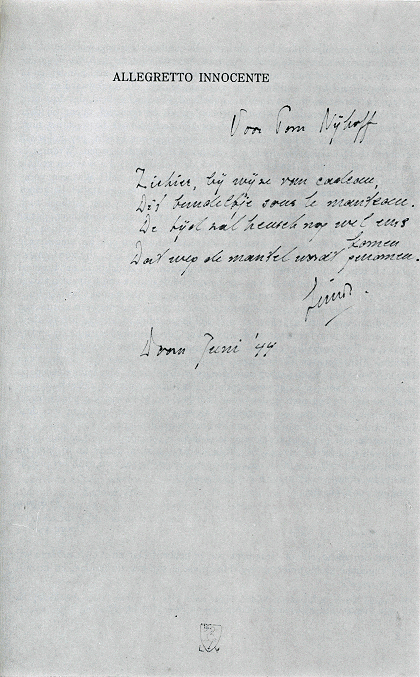 ALLEGRETTO INNOCENTE
Voor Tom Nijhoff
Ziehier, bij wijze van cadeau,
Dit bundeltje sous le manteau.
De tijd zal heusch nog wel eens komen
Dat weg de mantel wordt genomen.
Juni '44